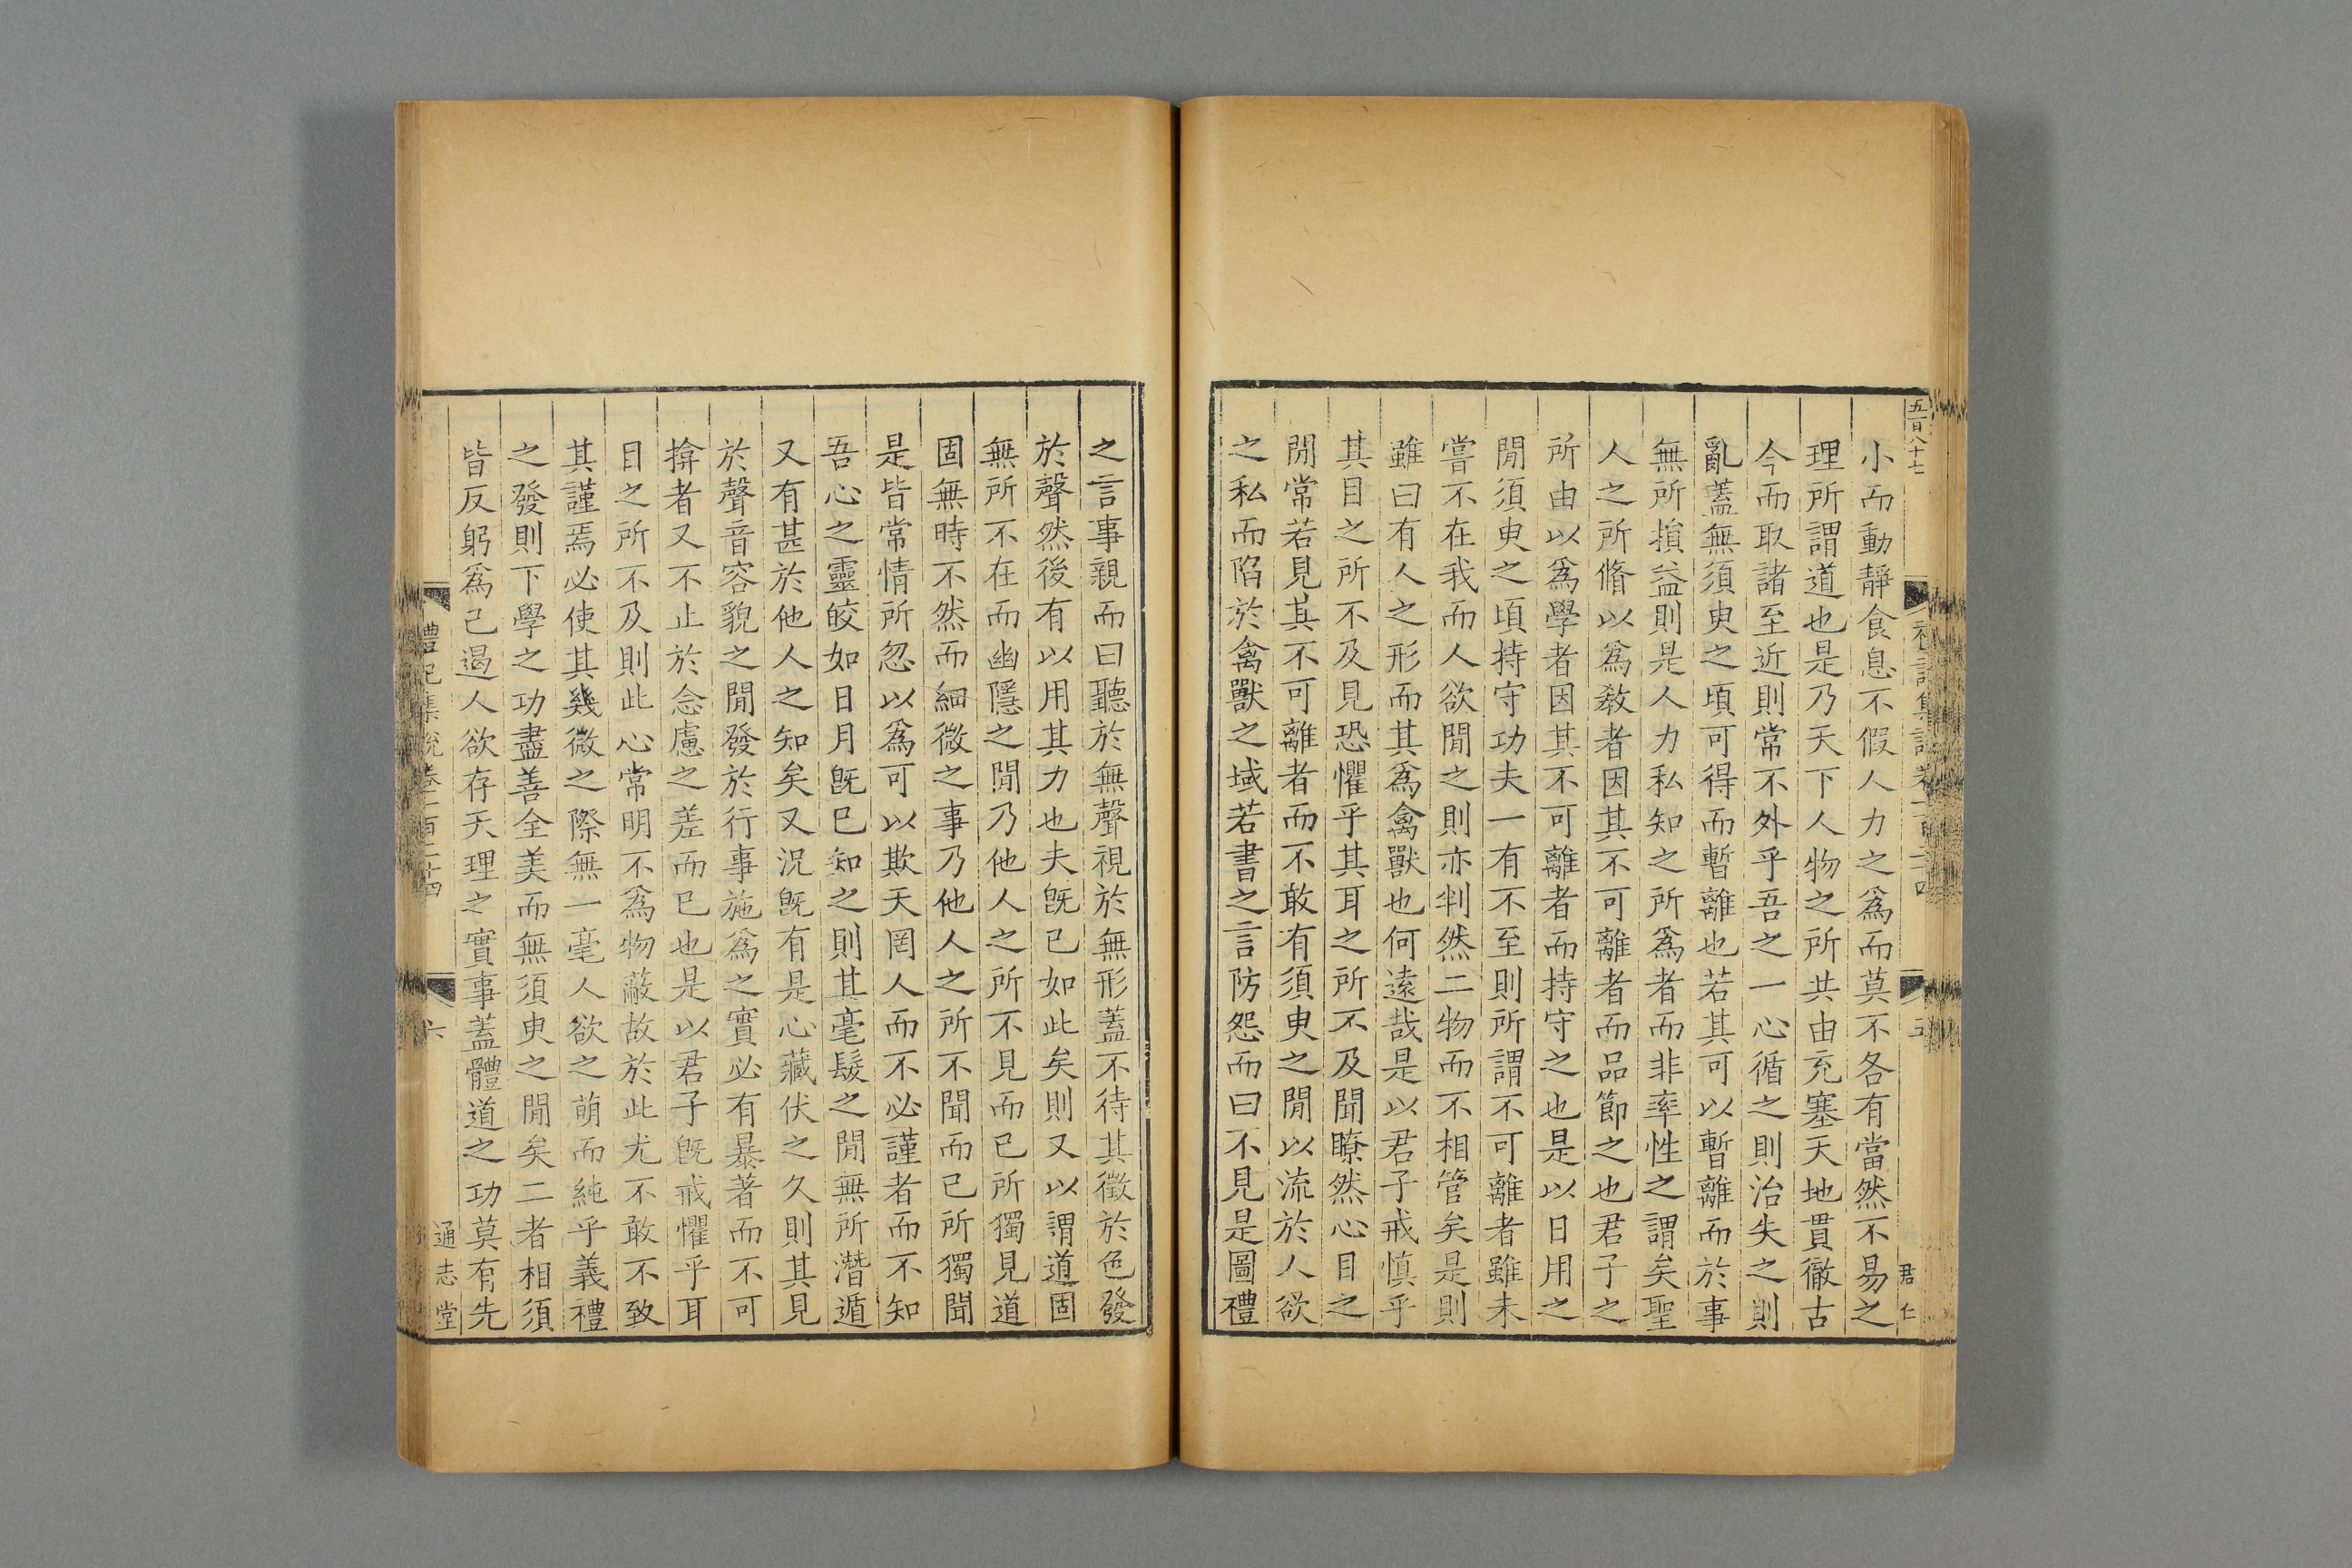 五百八十七
小而動靜食息不假人力之爲而莫不各有當然不易之
理所謂道也是乃天下人物之所共由充塞天地貫徹古
今而取諸至近則常不外乎吾之一心循之則治失之則
亂蓋無須臾之頃可得而暫離也若其可以暫離而於事
無所損益則是人力私知之所爲者而非率性之謂矣聖
人之所脩以爲敎者因其不可離者而品節之也君子之
所由以爲學者因其不可離者而持守之也是以日用之
閒須臾之頃持守功夫一有不至則所謂不可離者雖未
嘗不在我而人欲閒之則亦判然二物而不相管矣是則
雖曰有人之形而其爲禽獸也何遠哉是以君子戒慎乎
其目之所不及見恐懼乎其耳之所不及聞瞭然心目之
閒常若見其不可離者而不敢有須臾之閒以流於人欲
之私而陷於禽獸之域若書之言防怨而曰不見是圖禮
君仁
之言事親而曰聽於無聲視於無形蓋不待其徵於色發
於聲然後有以用其力也夫旣已如此矣則又以謂道固
無所不在而幽隱之閒乃他人之所不見而己所獨見道
固無時不然而細微之事乃他人之所不聞而己所獨聞
是皆常情所忽以爲可以欺天罔人而不必謹者而不知
吾心之靈皎如日月旣已知之則其毫髮之閒無所潛遁
又有甚於他人之知矣又況旣有是心藏伏之久則其見
於聲音容貌之閒發於行事施爲之實必有暴著而不可
揜者又不止於念慮之差而已也是以君子旣戒懼乎耳
目之所不及則此心常明不爲物蔽故於此尤不敢不致
其謹焉必使其幾微之際無一毫人欲之萌而純乎義禮
之發則下學之功盡善全美而無須臾之閒矣二者相須
皆反躬爲己遏人欲存天理之實事蓋體道之功莫有先
禮記集說卷一百二十四
六
通志堂